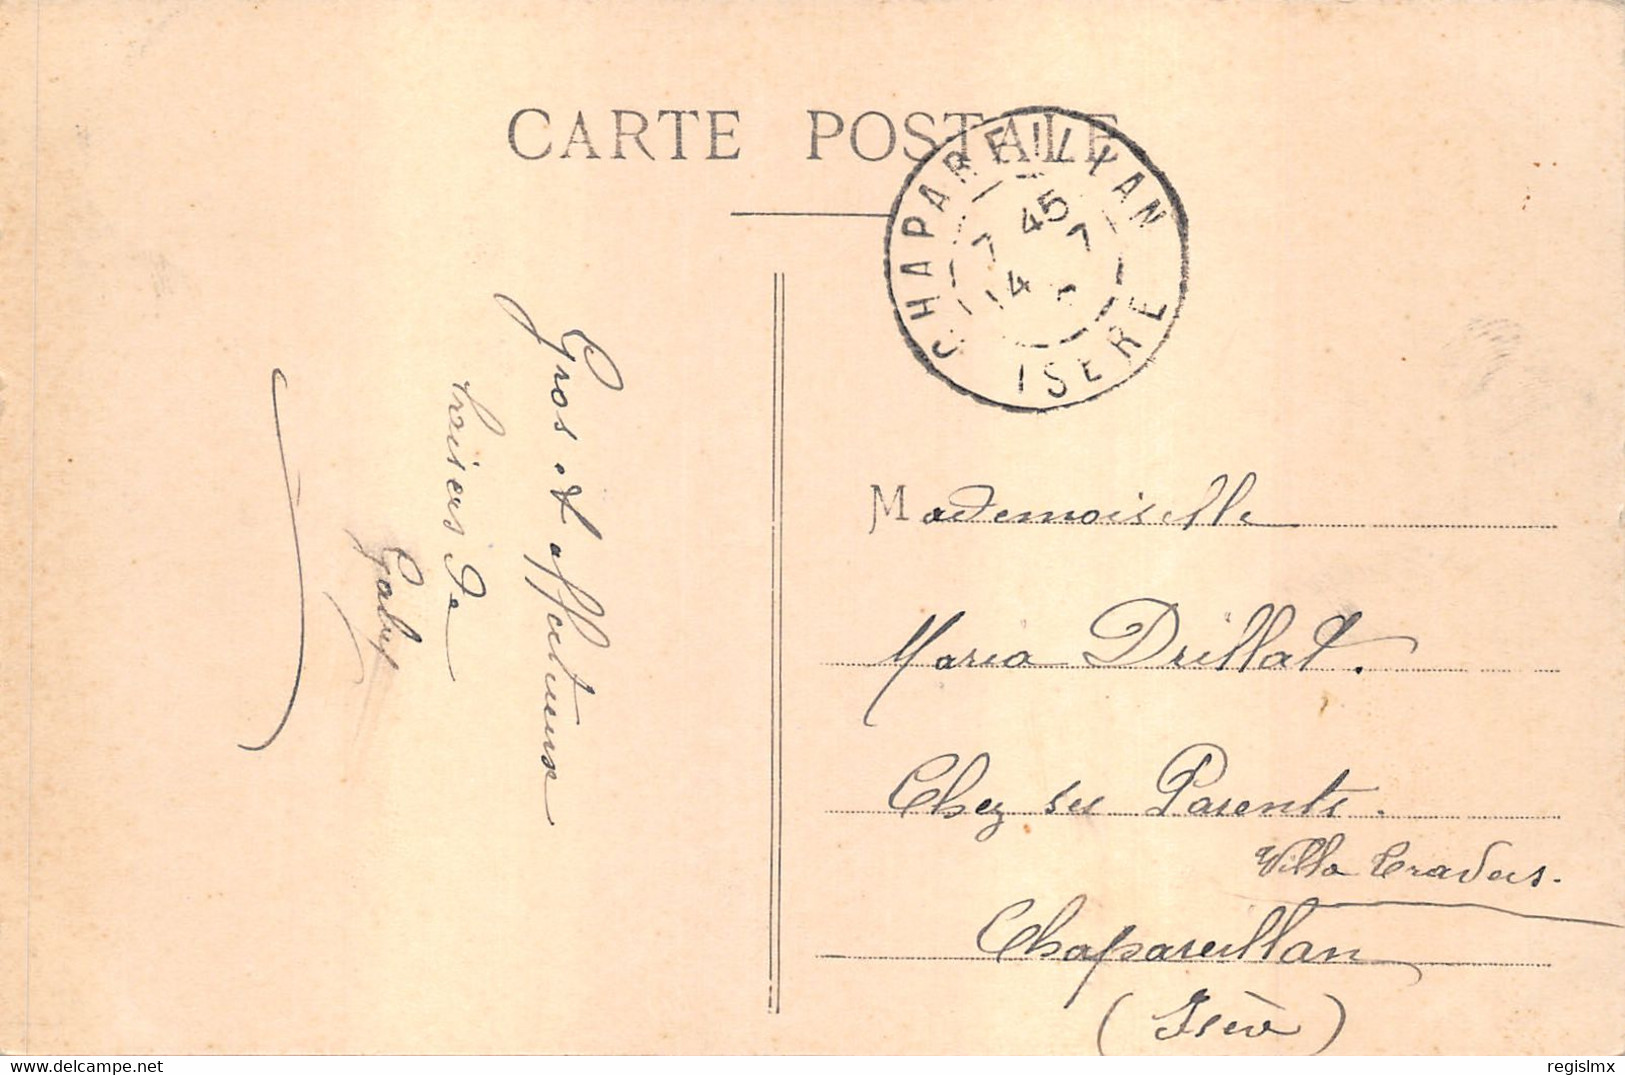 CARTE POSTALE
CHAPAREILLAN
7 45
4 7
ISERE
Gros et affectueux
baisers de
Gaby
Mademoiselle
Maria Drillat.
Chez ses Parents.
Villa
Chapareillan
(Isère)
www.delcampe.net
regislmx